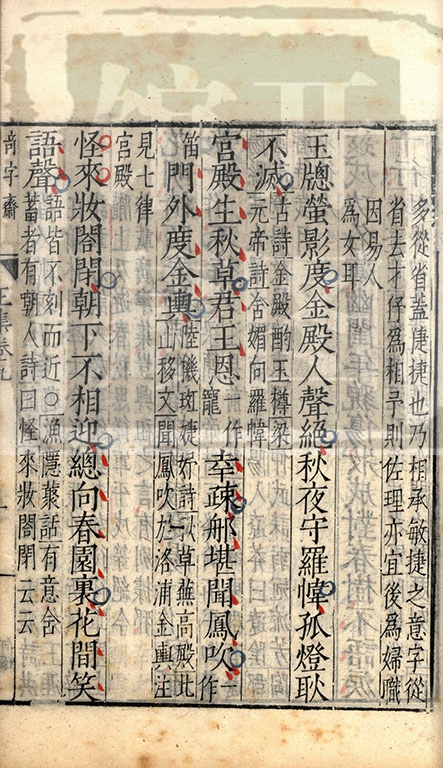 多從省蓋偼捷也乃相承敏捷之意字從
省去才仔爲相予則佐理亦宜後爲婦職
因易人
爲女耳
玉牕螢影度金殿人聲絕秋夜守羅幃孤燈耿
不滅
古詩金殿酌玉樽梁
元帝詩含媚向羅幃
宮殿生秋草君王恩
一作
寵
幸疎那堪聞鳳吹
一作
笛
門外度金輿
陸機班婕妤詩秋草蕪高殿北
山移文聞鳳吹於洛浦金輿注
見七律
宮殿
怪來妝閣閉朝下不相迎總向春園裏花間笑
語聲
語皆不刻而近○漁隱叢話有意含
蓄者有朝人詩曰怪來妝閣閉云云
王集卷九